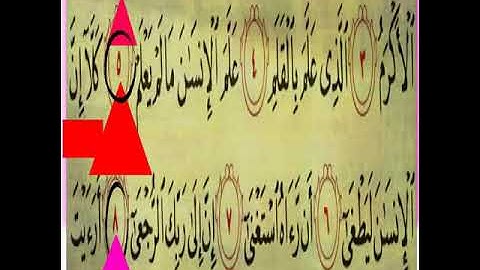 ٱلْأَكْرَمُ ٣ ٱلَّذِى عَلَّمَ بِٱلْقَلَمِ ٤ عَلَّمَ ٱلْإِنسَٰنَ مَا لَمْ يَعْلَمْ ٥ كَلَّآ إِنَّ
ٱلْإِنسَٰنَ لَيَطْغَىٰٓ ٦ أَن رَّءَاهُ ٱسْتَغْنَىٰٓ ٧ إِنَّ إِلَىٰ رَبِّكَ ٱلرُّجْعَىٰٓ ٨ أَرَءَيْتَ